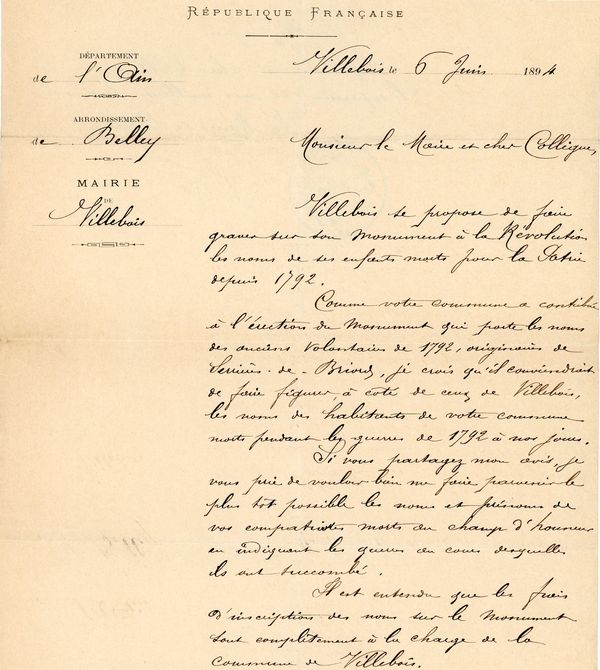 RÉPUBLIQUE FRANÇAISE
DÉPARTEMENT
de l'Ain
ARRONDISSEMENT
de Belley
MAIRIE
DE
Villebois
Villebois le 6 Juin 1894
Monsieur le Maire et cher Collègue,
Villebois se propose de faire
graver sur son Monument à la Révolution
les noms de ses enfants morts pour la Patrie
depuis 1792.
Comme votre commune a contribué
à l'érection du Monument qui porte les noms
des anciens Volontaires de 1792, originaires de
Serrières-de-Briord, je crois qu'il conviendrait
de faire figurer, à coté de ceux de Villebois,
les noms des habitants de votre commune
morts pendant les guerres de 1792 à nos jours.
Si vous partagez mon avis, je
vous prie de vouloir bien me faire parvenir le
plus tot possible les noms et prénoms de
vos compatriotes morts au champ d'honneur
en indiquant les guerres au cours desquelles
ils ont succombé.
Il est entendu que les frais
d'inscription des noms sur le Monument
sont complètement à la charge de la
commune de Villebois.